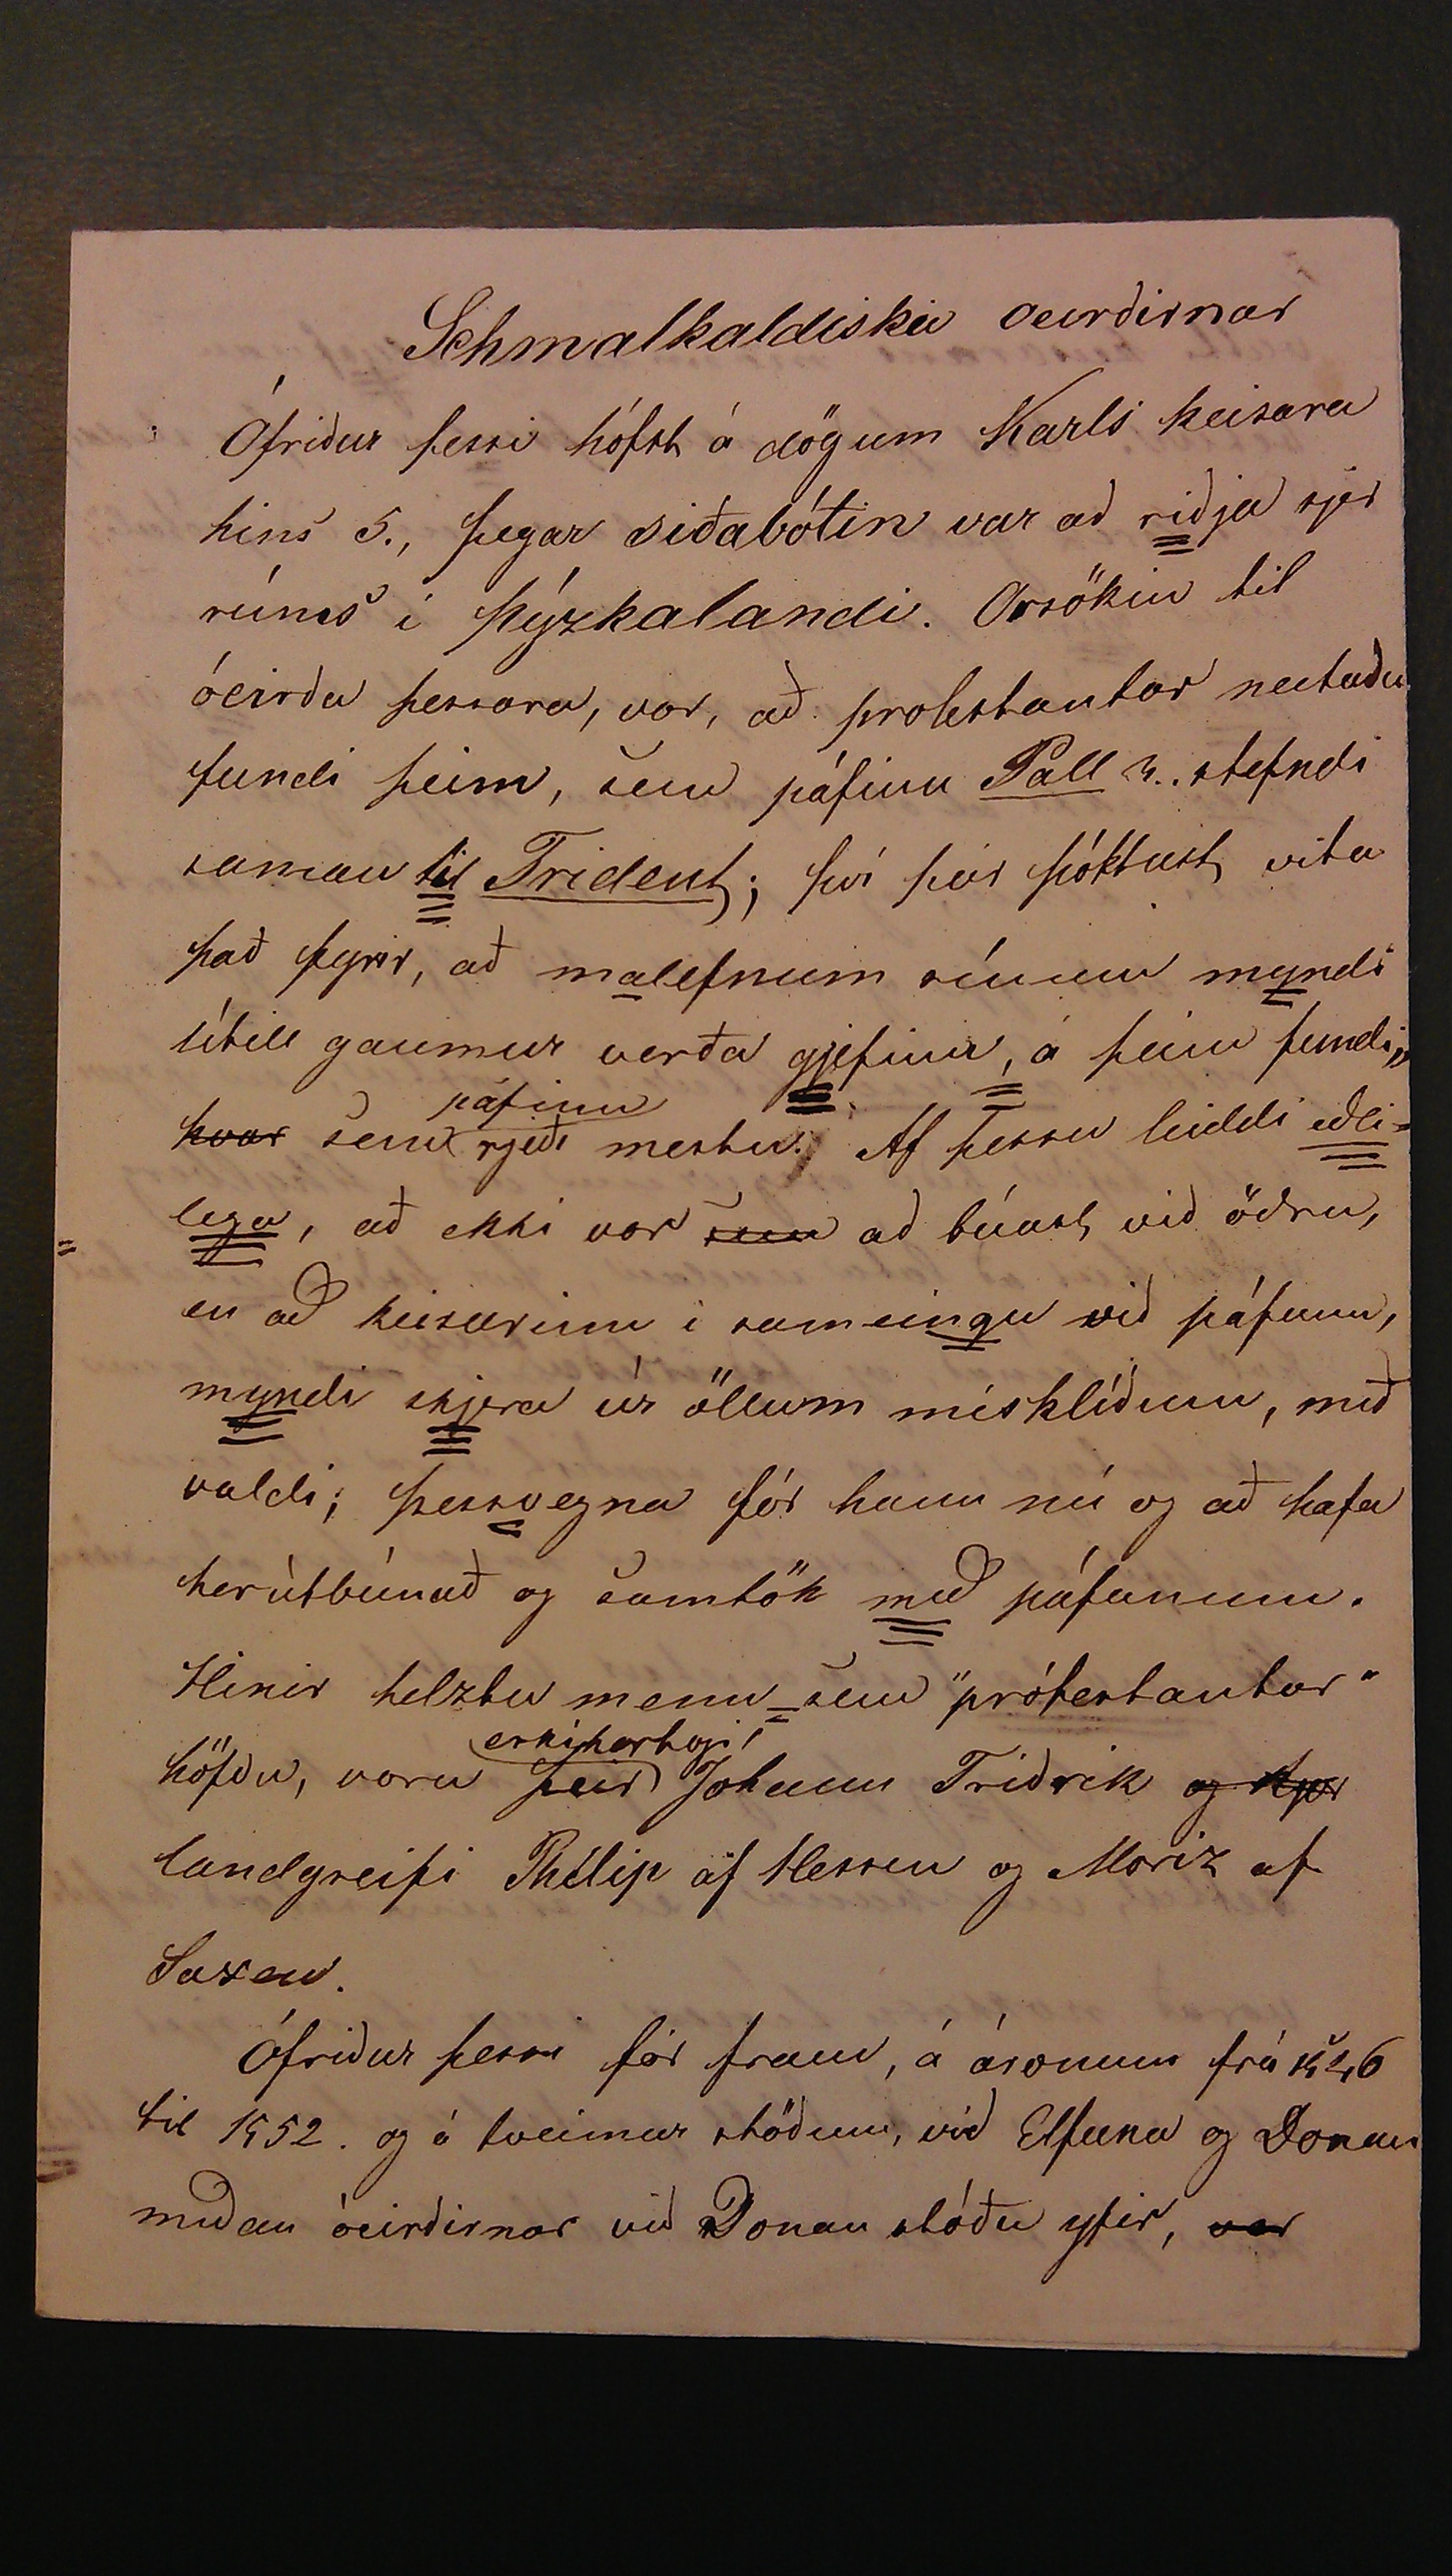 Schmalkaldisku oeirðirnar
Ófriður þessi hófst á dögum Karls keisara
hins 5., þegar siðabótin var að riðja sjer
rúms í Þýzkalandi. Orsökin til
óeirða þessara, var, að protestantar neituðu
fundi þeim, sem páfinn Páll 3. stefndi
saman til Trident; því þeir þóktust vita
það fyrir, að malefnum sínum myndi
lítill gaumur verða gjefinn, á þeim fundi,
hvar sem páfinn rjeði mestu. Af þessu leiddi eðli-
lega, að ekki var sem að búast við öðru,
en að keisarinn í sameingu við páfann,
myndi skjera úr öllum misklíðum, með
valdi; þessvegna fór hann nú og að hafa
herútbúnað og samtök með páfanum.
Hinir helztu menn sem "prótestantar"
höfðu, voru þeir erkihertogi Johann Friðrik og
landgreifi Philip af Hessen og Moriz af
Saxen.
Ófriður þessi fór fram, á áronum frá 1546
til 1552. og á tveimur stöðum, við Elfuna og Donau
meðan óeirðirnar við Donau stóðu yfir, var